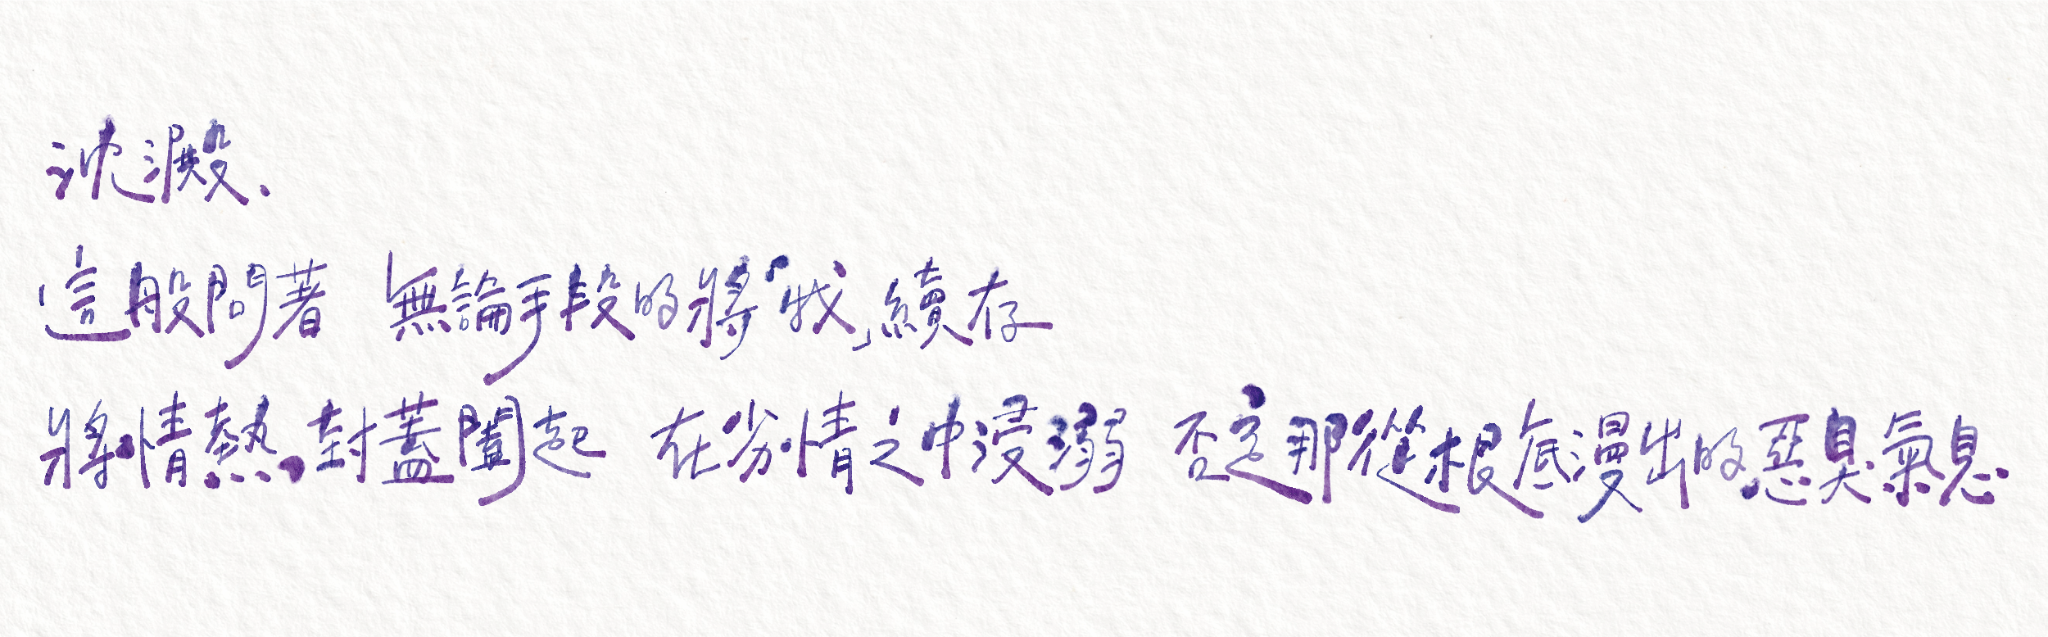 沈澱、
這般問著 無論手段的將「我」續存
將情熱封蓋闔起 在劣情之中浸溺 否定那從根底漫出的惡臭氣息